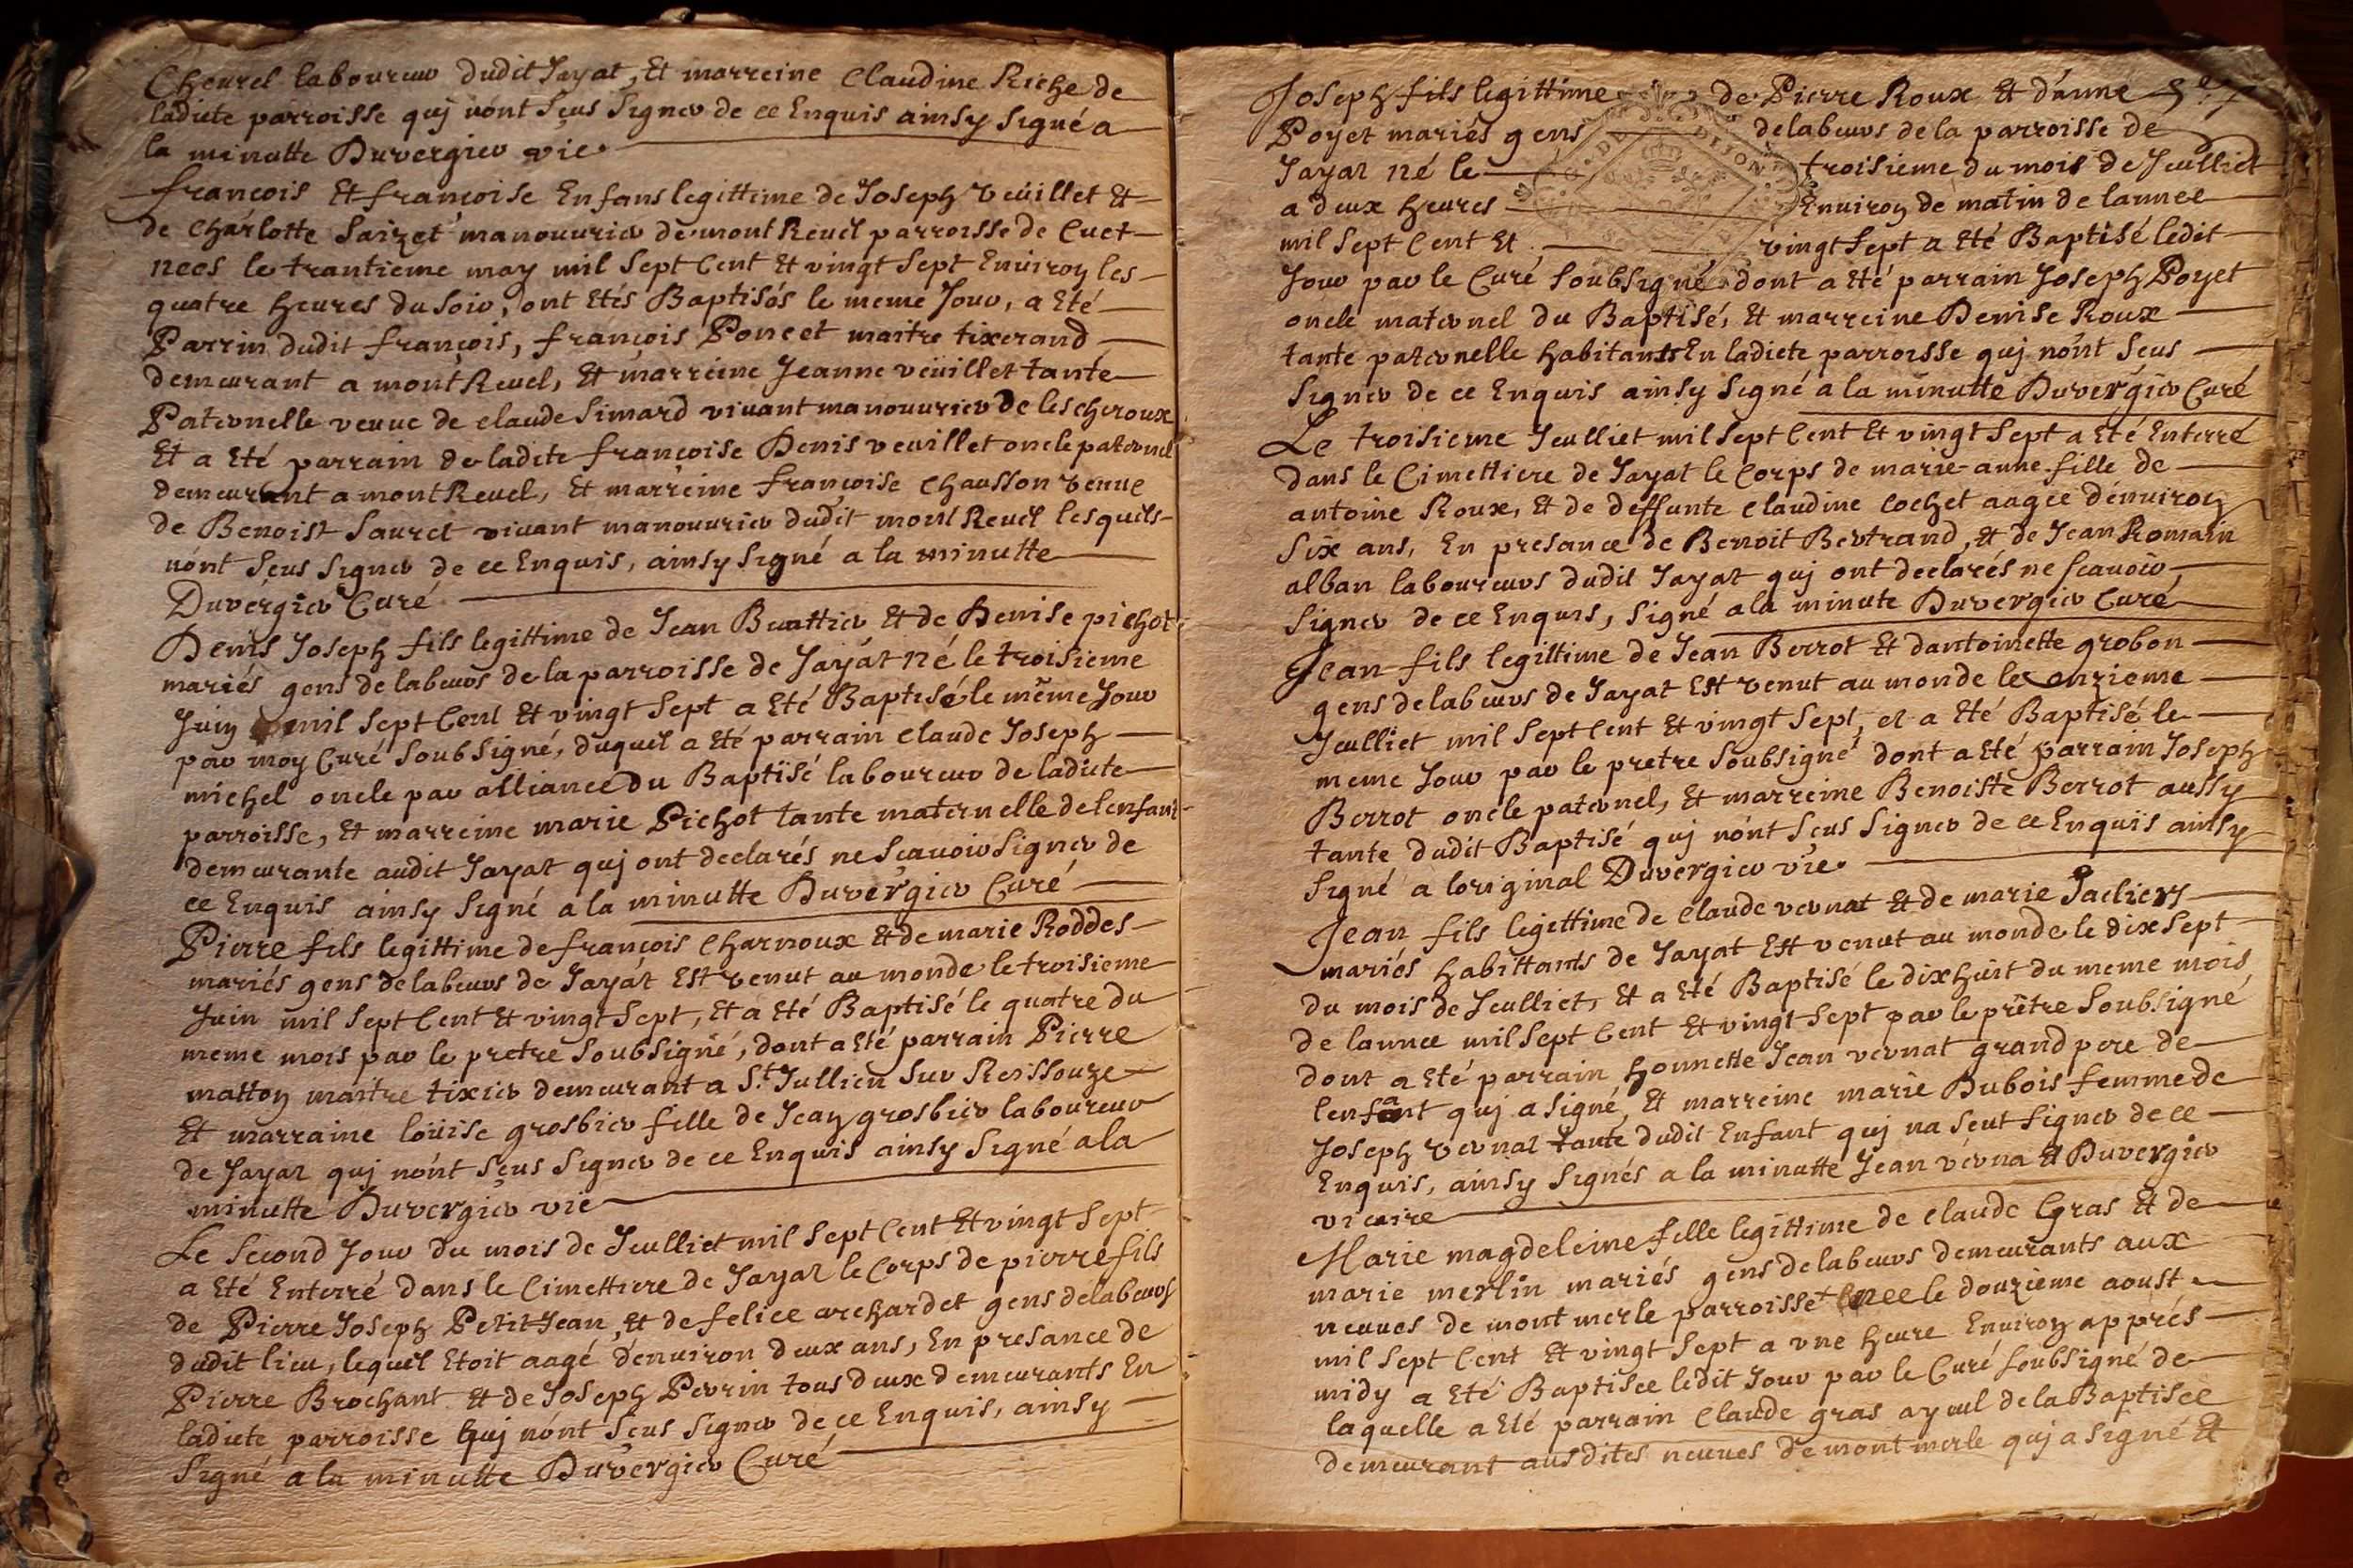 Cheurel laboureur dudit Jayat, Et marreine Claudine Riche de
ladicte parroisse quj nònt sçus signer de ce Enquis ainsy signé a
la minutte Duvergier vie.
françois Et françoise Enfans legittime de Joseph veuillet Et
de Charlotte Saizet manouurier de mont Reuel parroisse de Cuet
nees le trantieme may mil sept Cent Et vingt sept Enuiron les
quatre heures du soir, ont Etés Baptisés le meme Jour, a Eté
Parrin dudit françois, françois Poncet maitre tixerand
demeurant a mont Reuel, Et marreine Jeanne veüillet tante
Paternelle veuue de claude Simard viuant manouurier de lescheroux
Et a Eté parrain de ladite françoise Denis veuillet oncle paternel
demeurant a mont Reuel, Et marreine françoise Chausson venue
de Benoist Sauret viuant manouurier dudit mont Reuel lesquels
nónt sçus signer de ce Enquis, ainsy signé a la minutte
Duvergier Curé
Denis Joseph fils legittime de Jean Buattier Et de Denise pichot
mariés gens de labeurs de la parroisse de Jayat né le troisieme
Juin mil sept Cent Et vingt sept a Eté Baptisé le même Jour
par moy Curé soubsigné, duquel a Eté parrain claude Joseph
michel oncle par alliance du Baptisé laboureur de ladicte
parroisse, Et marreine marie Pichot tante maternelle de lenfant
demeurante audit Jayat quj ont declarés ne scauoir signer de
ce Enquis ainsy signé a la minutte Duvergier Curé
Pierre fils legittime de françois Charnoux Et de marie Roddes
mariés gens de labeurs de Jayat Est venut au monde le troisieme
Juin mil sept Cent Et vingt sept, Et a Eté Baptisé le quatre du
meme mois par le pretre soubsigné, dont a Eté parrain Pierre
matton maitre tixier demeurant a St. Jullien sur Reissouze
Et marraine loüise grosbier fille de Jean grosbier laboureur
de Jayat quj nónt sçus signer de ce Enquis ainsy signé a la
minutte Duvergier vie
Le second Jour du mois de Jeulliet mil sept Cent Et vingt sept
a Eté Enterré dans le Cimettiere de Jayat le Corps de pierre fils
de Pierre Joseph Petit Jean, Et de felice archardet gens de labeurs
dudit lieu, lequel Etoit aagé d'enuiron deux ans, En presance de
Pierre Brochant Et de Joseph Perrin tous deux demeurants En
ladicte parroisse quj nónt sçus signer de ce Enquis, ainsy
signé a la minutte Duvergier Curé
Joseph fils legittime de Pierre Roux Et d'anne
Poyet mariés gens de labeurs de la parroisse de
Jayat né le troisieme du mois de Jeulliet
a deux heures Enuiron de matin de lannee
mil sept Cent Et vingt sept a Eté Baptisé ledit
Jour par le Curé soubsigné dont a Eté parrain Joseph Poyet
oncle maternel du Baptisé, Et marreine Denise Roux
tante paternelle habitants En ladicte parroisse quj nónt sçus
signer de ce Enquis ainsy signé a la minutte Duvergier Curé
Le troisieme Jeulliet mil sept Cent Et vingt sept a Eté Enterré
dans le Cimettiere de Jayat le Corps de marie-anne fille de
antoine Roux, Et de deffunte claudine cochet aagee d'enuiron
six ans, En presance de Benoit Bertrand, Et de Jean Romain
alban laboureurs dudit Jayat quj ont declarés ne scauoir
signer de ce Enquis, signé a la minute Duvergier Curé
Jean fils legittime de Jean Berrot Et dantoinette grobon
gens de labeurs de Jayat Est venut au monde le onzieme
Jeulliet mil sept Cent Et vingt sept, et a Eté Baptisé le
meme Jour par le pretre soubsigné dont a Eté parrain Joseph
Berrot oncle paternel, Et marreine Benoiste Berrot aussy
tante dudit Baptisé quj nónt sçus signer de ce Enquis ainsy
signé a loriginal Duvergier vie.
Jean fils legittime de claude vernat Et de marie Pacliers
mariés habittants de Jayat Est venut au monde le dix sept
du mois de Jeulliet, Et a Eté Baptisé le dix huit du meme mois
de lannee mil sept Cent Et vingt sept par le prêtre soubsigné
dont a Eté parrain honnette Jean vernat grand pere de
lenfant quj a signé, Et marreine marie Dubois femme de
Joseph vernat tante dudit Enfant quj na seut signer de ce
Enquis, ainsy signés a la minutte Jean verna Et Duvergier
vicaire
Marie magdeleine fille legittime de claude Gras Et de
marie merlin mariés gens de labeurs demeurants aux
neuues de mont merle parroisse nee le douzieme aoust
mil sept Cent Et vingt sept a vne heure Enuiron apprés
midy a Eté Baptisee ledit Jour par le Curé soubsigné de
laquelle a Eté parrain claude gras ayeul de la Baptisee
demeurant ausdites neuues de mont merle quj a signé Et